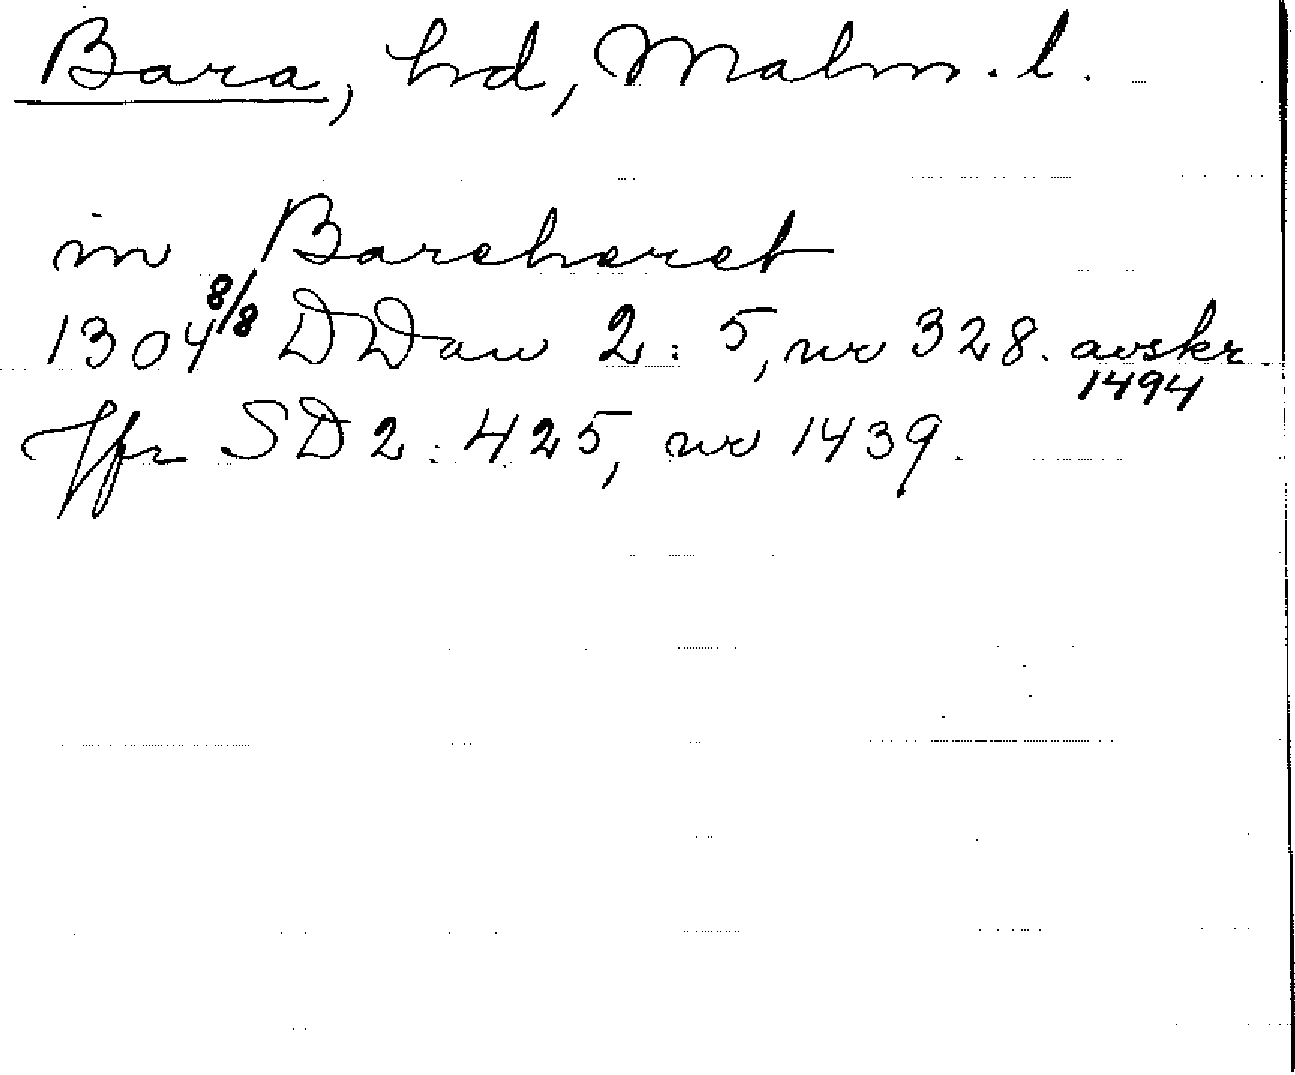 Bara, hd, Malm. l.
in Bareheret
1304 8/8 DDan 2:5, nr 328. avskr 1494
Jfr SD 2:425, nr 1439.